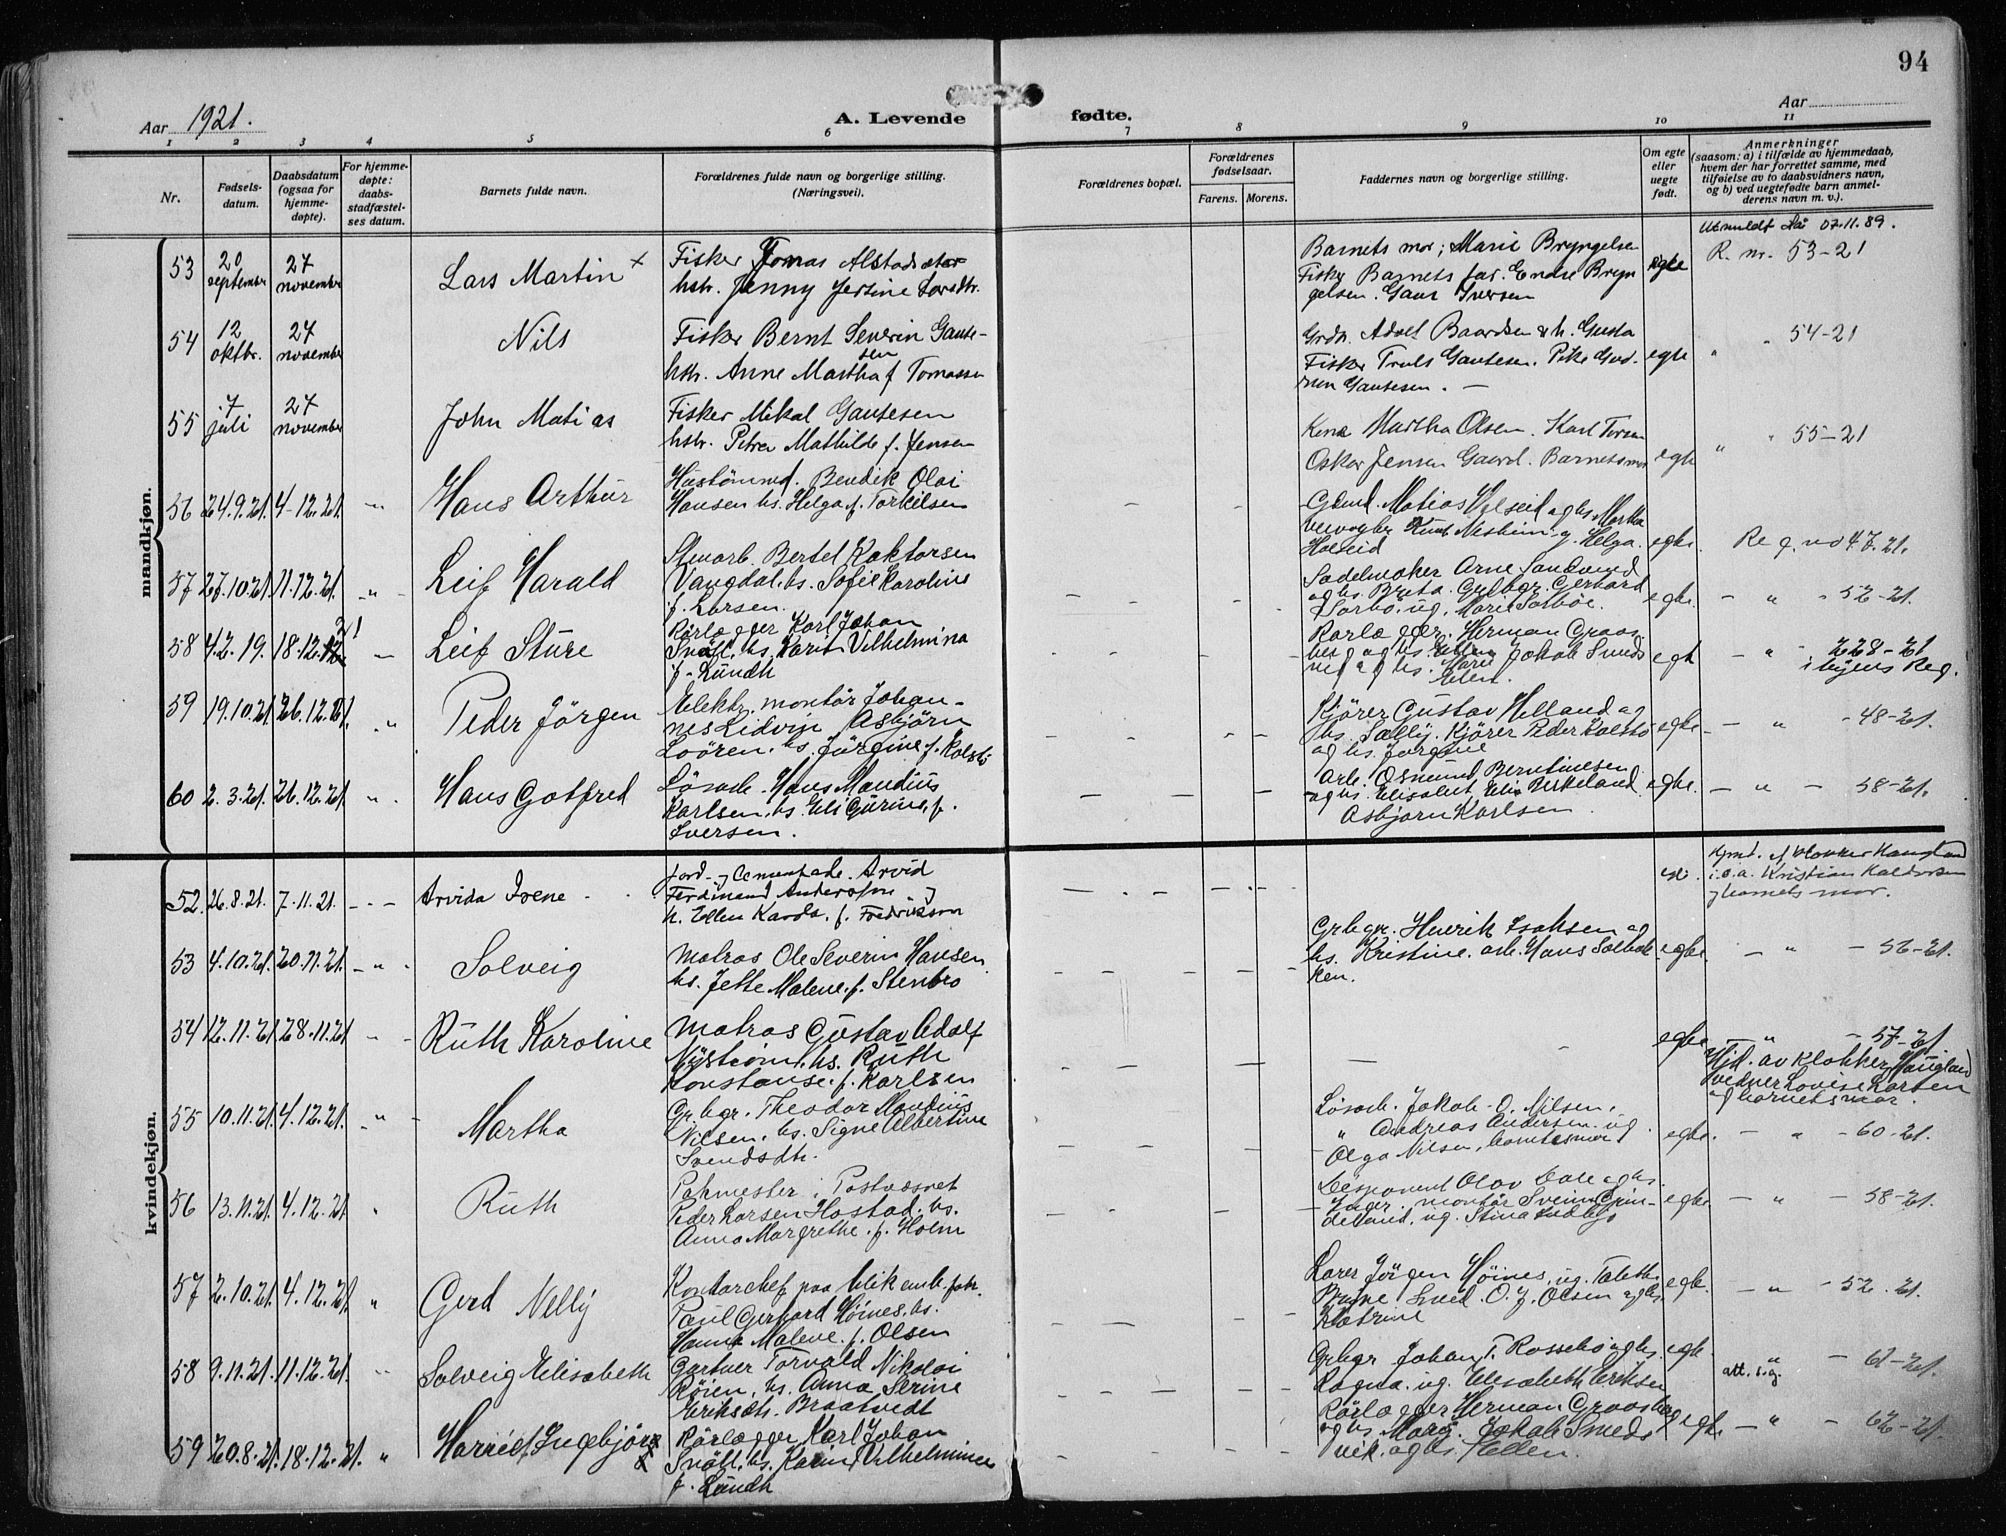 94
Aar 1921.
A. Levende fødte.
Aar
1 2 3 4 5 6 7 8 9 10 11
Nr.
Fødsels-
datum.
Daabsdatum
(ogsaa for
hjemme-
døpte).
For hjemme-
døpte:
daabs-
stadfæstel-
ses datum.
Barnets fulde navn.
Forældrenes fulde navn og borgerlige stilling.
(Næringsvei).
Forældrenes bopæl.
Forældrenes
fødselsaar.
Farens. Morens.
Faddernes navn og borgerlige stilling.
Om egte
eller
uegte
født.
Anmerkninger
(saasom: a) i tilfælde av hjemmedaab,
hvem der har forrettet samme, med
tilføielse av to daabsvidners navn,
og b) ved uegtefødte barn anmel-
derens navn m. v.).
07.11.89.
mandkjøn.
53 20 september 27 november Lars Martin x
Fisker Tomas
hstr. Jenny
Barnets mor; Marie Bryngelsen
Fisker Barnets far. Endre Bryn
gelsen. Iversen
egte R. nr. 53-21
54 12 oktbr. 27 november Nils
Fisker Bernt Severin Gaute-
sen
hstr. Anne Martha f Tomassen
Baardsen & h. Gusta
Fisker Truls Gautesen. Pike Gud-
run Gautesen. —
egte " " 54-21
55 7 juli 27 november John Matias
Fisker Mikal Gautesen
hstr. Petra Mathilde f. Jensen
Kona Martha Olsen. Karl
Oskar Jensen Barnets mor
egte " " 55-21
56 24.9.21. 4-12.21. -"- Hans Arthur
Bendik Olai
Hansen hs. Helga f. Torkilsen
Matias og hs. Martha
Helga.
egte. Reg. no 47.21.
57 27.10.21 11.12.21. -"- Leif Harald
Bertel
Vangdal. hs. Sofie Karoline
f. Larsen.
Sadelmaker Arne
og hs. Berta. Gerhard
ug. Marie
egte. - " - 52-21.
58 4.2.19. 18.12.21 - Leif Sture
Rörlægger Karl Johan
Snäll. hs. Karin Vilhelmina
f. Lundh
Rørlægger. Herman
og hs. Jakob Smeds
vik og hs. Ellen.
egte - " - 228-21
i byens Reg.
59 19.10.21 26.12.21. " Peder Jörgen
Elektr. montör Johan-
nes Lidvin Asbjörn
hs. Jörgine f. Kolstö
Kjörer Gustav Helland og
hs. Sally. Kjörer Peder Kolstö
og hs. Jorgine
egte - " -48-21.
60 2.3.21. 26.12.21. " Hans Gotfred
Lösarb. Hans Mandius
Karlsen. hs. Eli Gurine. f.
Iversen.
Arb. Osmund Berntinesen
og hs. Elisabet Birkeland
Asbjørn Karlsen
egte. - " - 58-21.
kvindekjøn.
52. 26.8.21. 7.11.21. - - - Arvida Irene
Jord- og Arvid
Ferdinand og
h. Ellen f. Fredrikson
Hjmd. af klokker Haugland
i.o.a. Kristian
og barnets mor.
53 4.10.21. 20.11.21. -"- Solveig
Matros Ole Severin Hansen
hs. Jette Malene. f. Stenbro
Grbgr. Henrik Isaksen og
hs. Kristine. arb. Hans Solbak
ken.
egte - " - 56-21.
54 12.11.21 28.11.21 - Ruth Karoline
Matros Gustav Adolf
Nyström. hs. Ruth
Konstanse. f. Karlsen
egte " - 57-21
Hjd. av klokker Haugland
vidner Lovise Larsen
og barnets mor.
55 10.11.21 4.12.21. -"- Martha
Grbgr. Theodor Mandius
Nilsen. hs. Signe Albertine
Svendsdtr.
Lösarb. Jakob O. Nilsen.
" Andreas Andersen. ug
Olga Nilsen, barnets mor
egte. - " - 60-21.
56 13.11.21 4.12.21 " Ruth
Pakmester i Postvæsnet
Peder Larsen Hostad. hs.
Anna Margrethe. f. Holm
Disponent Olav og hs.
Inger. montör Svein Grin-
deland. ug. Stina
egte. - " - 58-21.
57 2.10.21 4.12.21. " Gerd Nelly
Kontorchef paa blikemb. fabr.
Paul Gerhard Höines. hs.
Hanna Malene. f. Olsen
Lærer Jörgen Höines. ug.
Smed. O. J. Olsen og hs.
Katrine
egte. - " - 52.21.
58 9.11.21. 11.12.21. " Solveig Elisabeth
Gartner Torvald Nikolai
Röien. hs. Anna Serine
Eriksdtr. Braatvedt
Grbgr Johan T. Rossebö og hs.
Ragna. ug. Elisabeth Eriksen
egte. att. s.g. " - 61-21.
59 20.8.21. 18.12.21. " Harriet Ingebjörg x
Rörlægger Karl Johan
Snäll. hs. Karin Vilhelmina
f. Lundh
Rörlægger Herman
og hs. Marg. Jakob Smeds
vik. og hs. Ellen.
egte - " - 62-21.